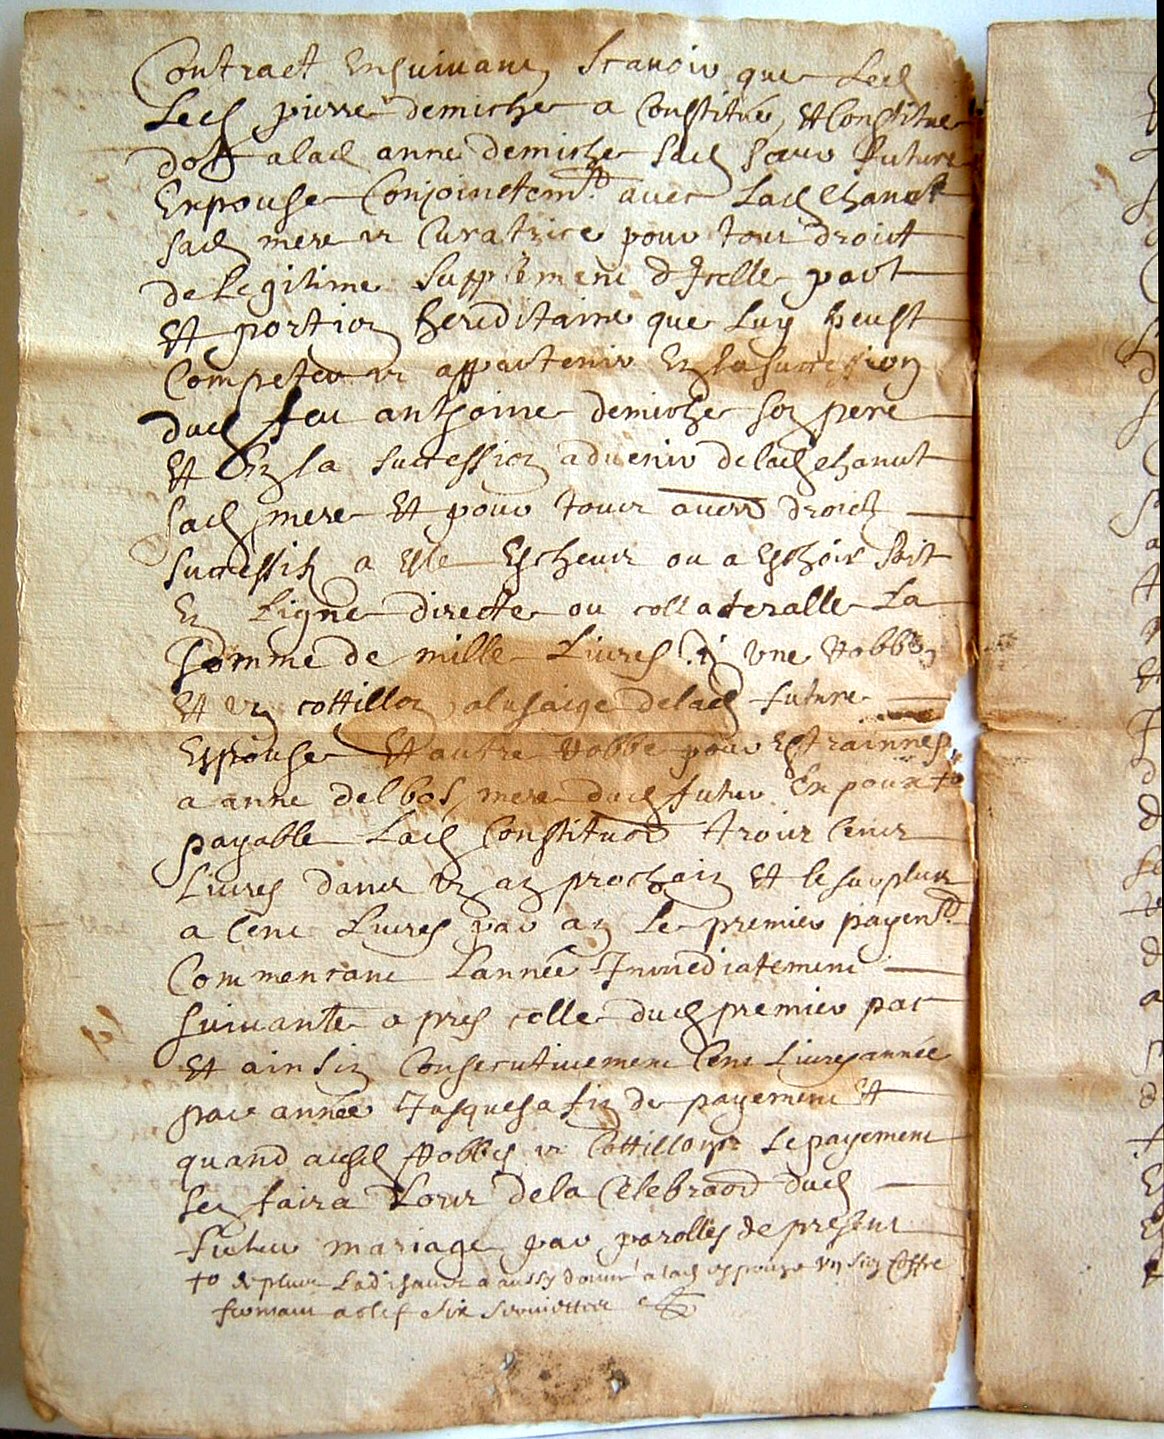 Contract Ensuivant Scavoir que Led
Led pierre demiche a Constitué, Et Constitue
dott a lad anne demiche sad sœur future
Expouse Conjoinctemt avec Lad Chanut
sad mere et Curatrice pour tout droict
de Legitime supplement d'Icelle part
Et portion hereditaire que Luy peust
Competer et appartenir En la succession
dud feu anthoine demiche son pere
Et En la succession advenir delad chanut
sad mere Et pour tous aucrs droicts
successifs a Elle Escheus ou a Eschoir soit
En Ligne directe ou collateralle La
somme de mille Livres une robbe
Et un cottillon a lusaige delad future
Espouse Et autre robbe pour Estraines
a anne delbos mere dud futur Expoux +o
payable Lad Constituon trois Cens
Livres dans un an prochain Et le surplus
a Cent Livres par an Le premier payent
Commencant Lannée Immediatement
suivante apres celle dud premier pac
Et ainsin Consecutivement Cent Livres année
par année Jusques a fin de payement Et
quand ausd Robbes et Cottillons Le payement
se faira Lors de la Celebraon dud
futur mariage par parolles de present
+o de plus Lad Chanut a aussy donné a lad espouse un sien Coffre
fermant a clef six serviettes